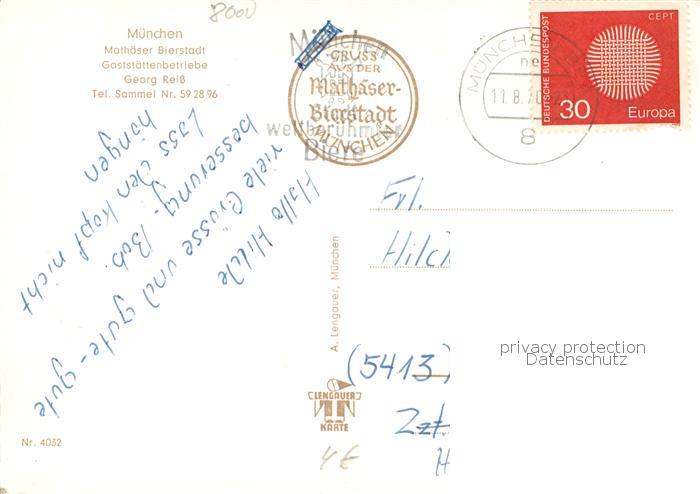 8000
München
Mathäser Bierstadt
Gaststättenbetriebe
Georg Reiß
Tel. Sammel Nr. 59 28 96
München
weltberühmter
Biere
GRUSS
AUS DER
Mathäser-
Bierstadt
MÜNCHEN
MÜNCHEN
11.8.70
8
DEUTSCHE BUNDESPOST
CEPT
30
Europa
Hallo Hilde
viele Grüsse und gute-gute
besserung. Bub.
Lass den Kopf nicht
hängen
A. Lengauer, München
Frl.
(5413)
Zzt.
H
privacy protection
Datenschutz
LENGAUER
KARTE
Nr. 4032
4 €